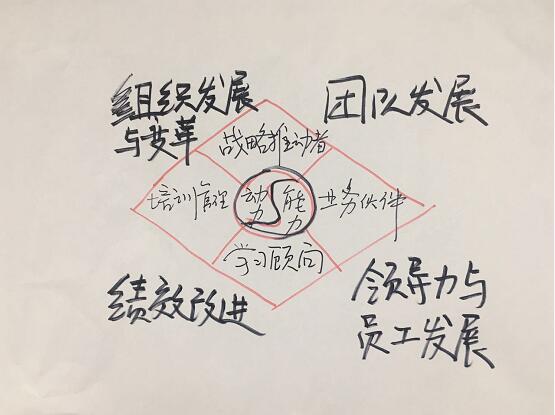 组织发展
与变革
团队发展
战略推动者
培训管理
动力
能力
业务伙伴
学习顾问
绩效改进
领导力与
员工发展